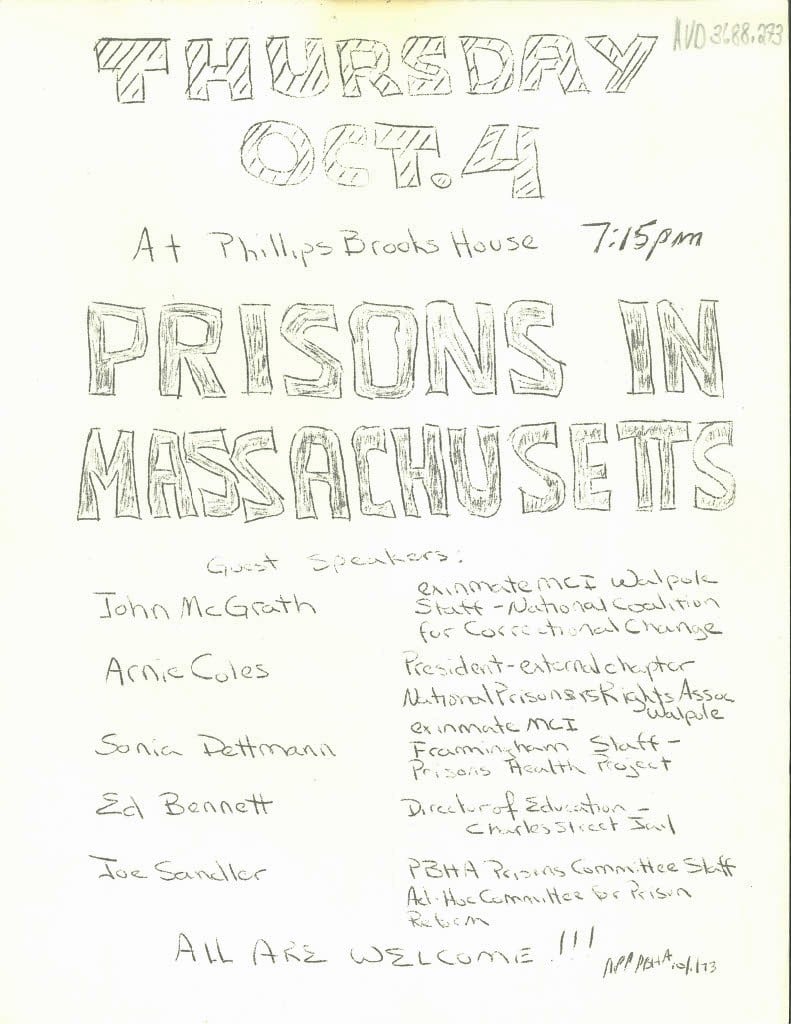 AVD 3688.273
THURSDAY
OCT. 4
At Phillips Brooks House 7:15pm
PRISONS IN
MASSACHUSETTS
Guest Speakers:
John McGrath
exinmate MCI Walpole
Staff - National Coalition
for Correctional Change
Arnie Coles
President - external chapter
National Prisoners Rights Assoc
Walpole
Sonia Dettmann
exinmate MCI
Framingham Staff -
Prisons Health Project
Ed Bennett
Director of Education -
Charles Street Jail
Joe Sandler
PBHA Prisons Committee Staff
Ad-Hoc Committee for Prison
Reform
ALL ARE WELCOME!!!
APP PBHA 10/1/73